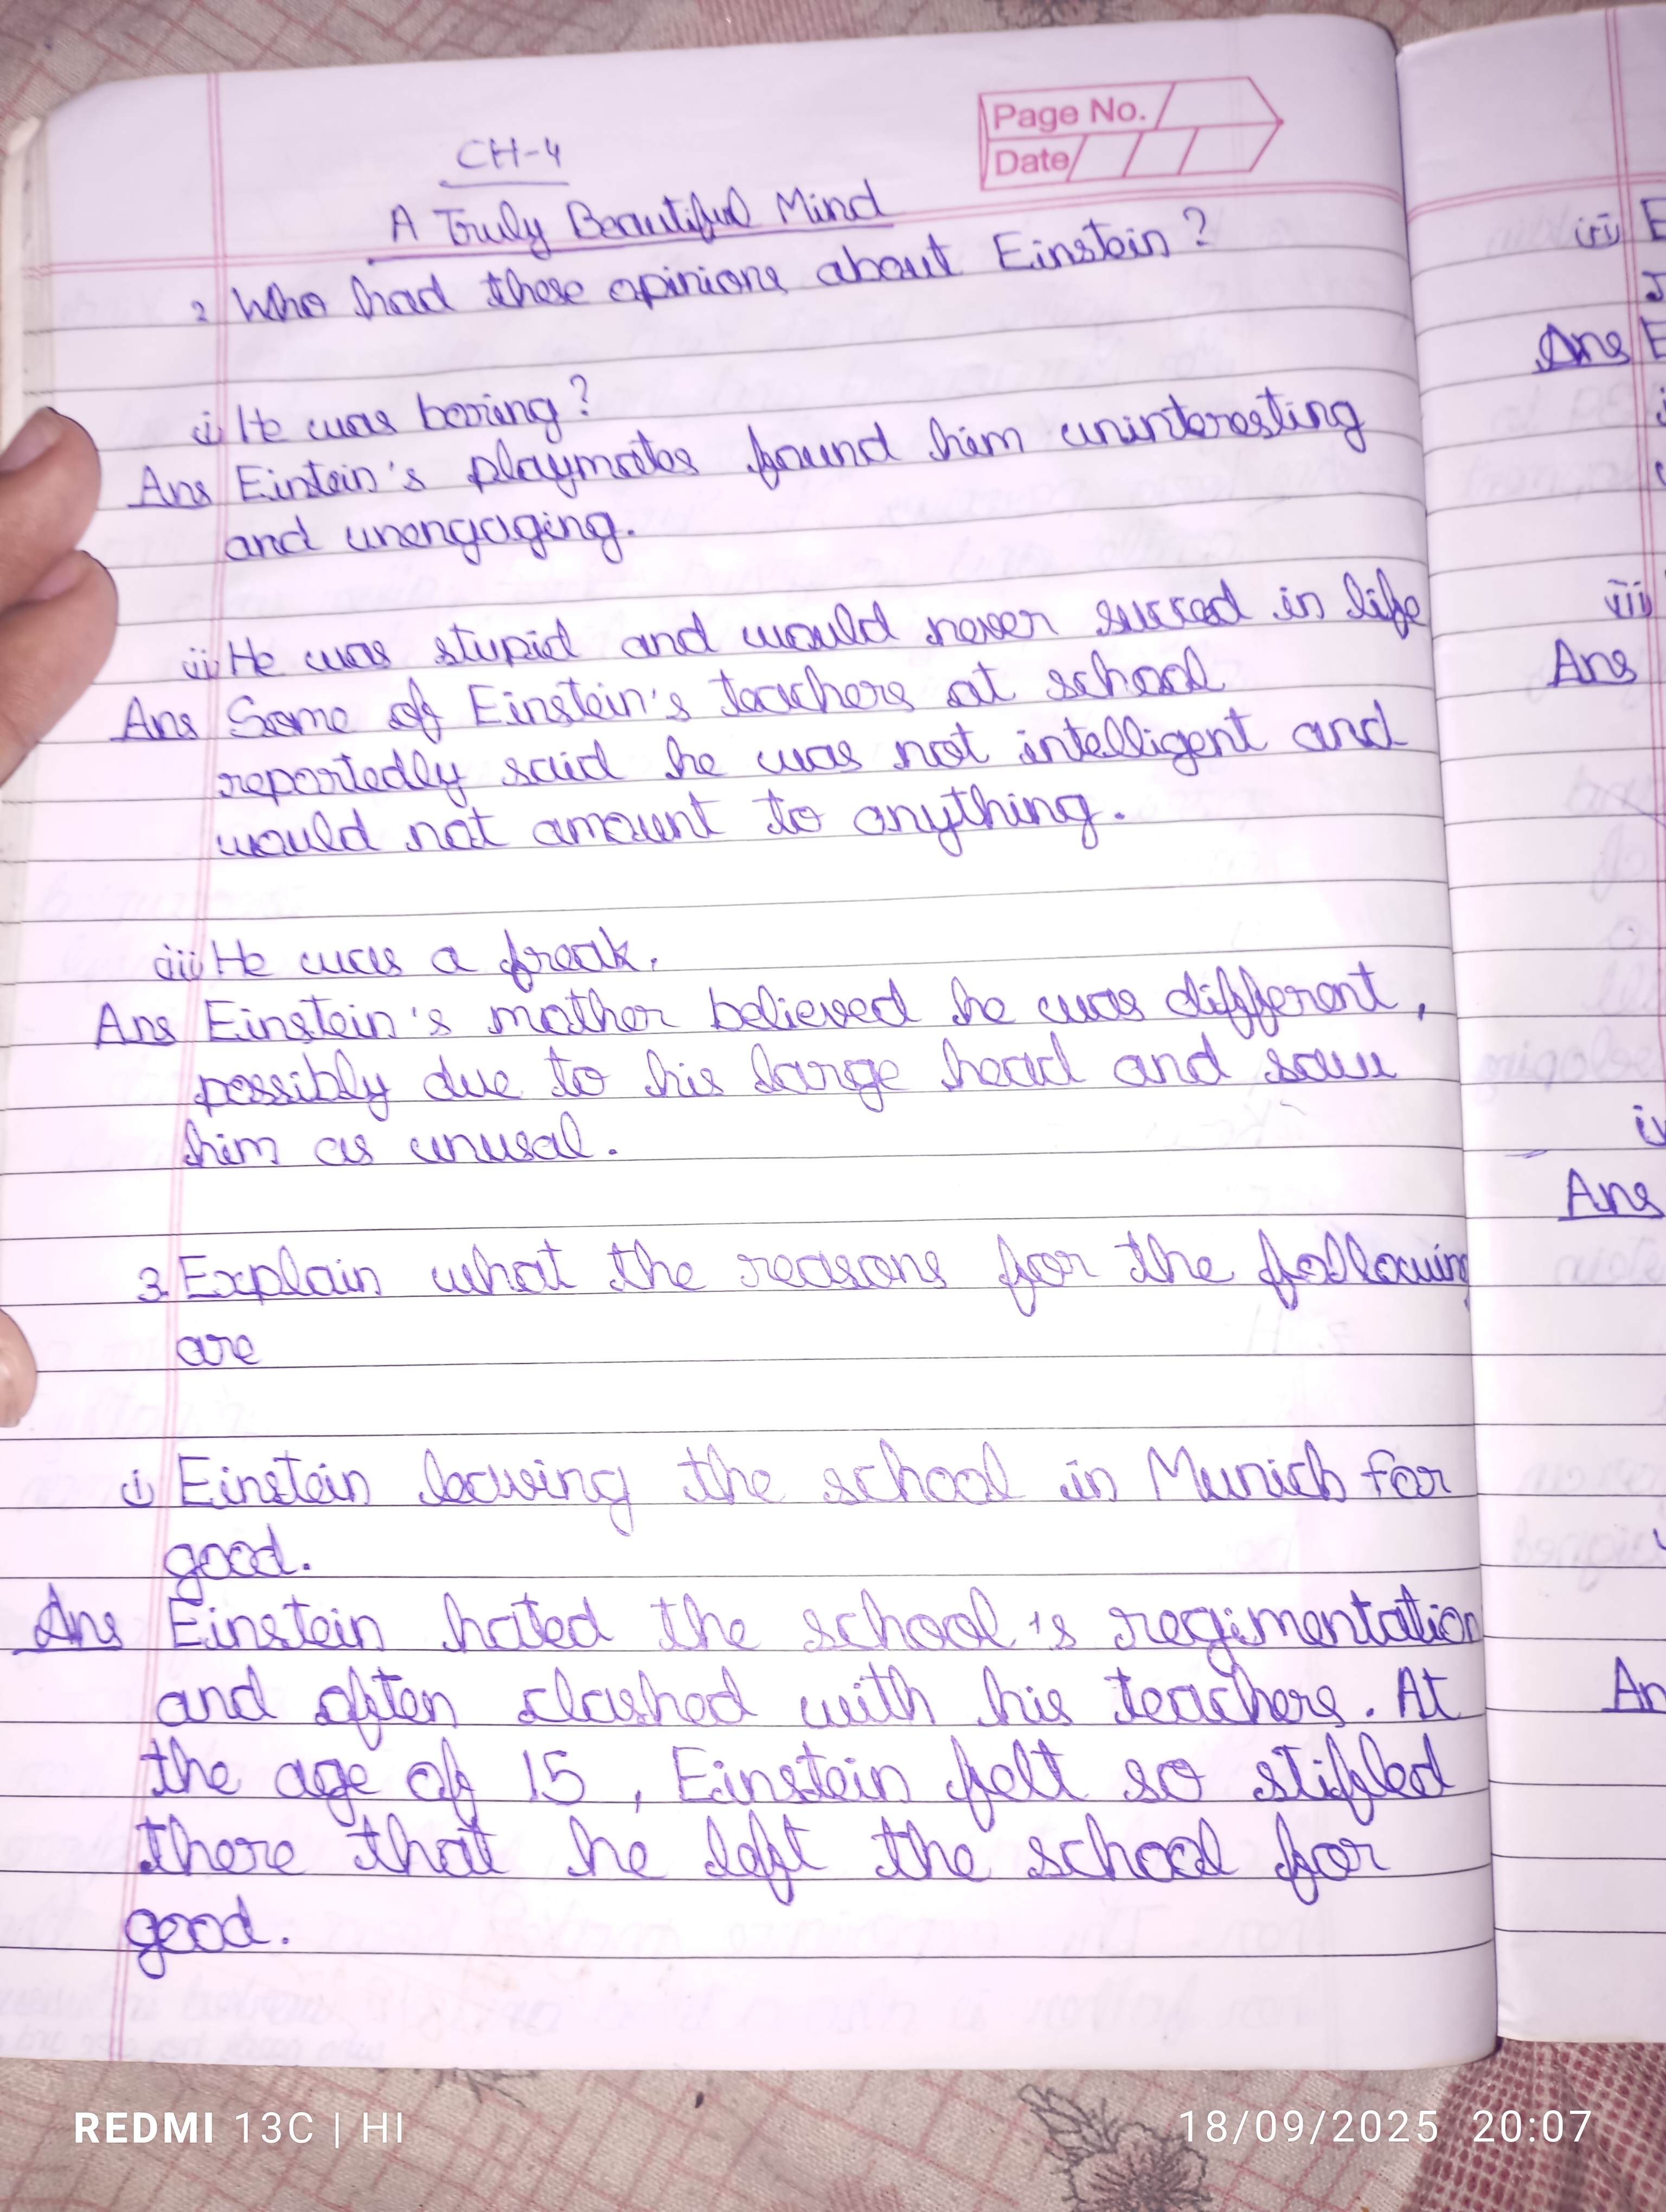 Page No.
Date
CH-4
A Truly Beautiful Mind
2 Who had these opinions about Einstein?
i) He was boring?
Ans Eintein's playmates found him uninteresting
and unengaging.
ii) He was stupid and would never succed in life
Ans Some of Einstein's teachers at school
reportedly said he was not intelligent and
would not amount to anything.
iii) He was a freak.
Ans Einstein's mother believed he was different,
possibly due to his large head and saw
him as unusal.
3. Explain what the reasons for the following
are
i) Einstein leaving the school in Munich for
good.
Ans Einstein hated the school's regimentation
and often clashed with his teachers. At
the age of 15, Einstein felt so stifled
there that he left the school for
good.
Ans
iii
Ans
Ans
REDMI 13C | HI
18/09/2025 20:07